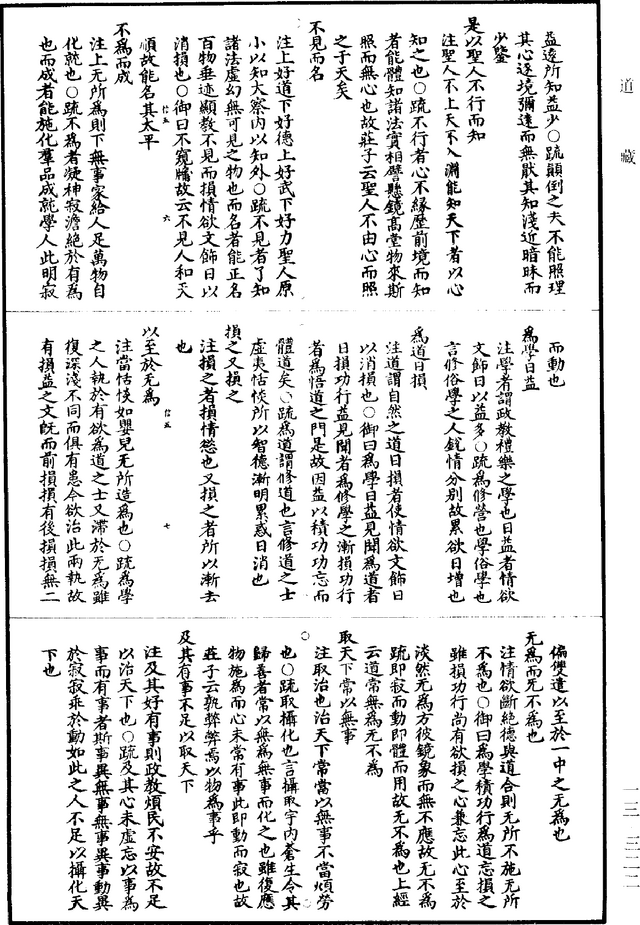 道藏
益遠所知益少○疏顛倒之夫不能照理
其心逐境彌遠而無猒其知淺近暗昧而
少鑒
是以聖人不行而知
注聖人不上天不入淵能知天下者以心
知之也○疏不行者心不緣歷前境而知
者能體知諸法實相譬懸鏡高堂物來斯
照而無心也故莊子云聖人不由心而照
之于天矣
不見而名
注上好道下好德上好武下好力聖人原
小以知大察內以知外○疏不見者了知
諸法虛幻無可見之物也而名者能正名
百物垂迹顯教不見而損情欲文飾日以
消損也○御曰不窺牖故云不見人和天
順故能名其太平
不為而成
注上無所為則下無事家給人足萬物自
化就也○疏不為者凝神寂澹絕於有為
也而成者能施化羣品成就學人此明寂
而動也
為學日益
注學者謂政教禮樂之學也日益者情欲
文飾日以益多○疏為修營也學俗學也
言修俗學之人銳情分別故累欲日增也
為道日損
注道謂自然之道日損者使情欲文飾日
以消損也○御曰為學日益見聞為道者
日損功行益見聞者為修學之漸損功行
者為悟道之門是故因益以積功功忘而
體道矣○疏為道謂修道也言修道之士
虛夷恬惔所以智德漸明累惑日消也
損之又損之
注損之者損情慾也又損之者所以漸去
也
以至於无為
注當恬惔如嬰兒无所造為也○疏為學
之人執於有欲為道之士又滯於无為雖
復深淺不同而俱有患今欲治此兩執故
有損益之文旣而前損損有後損損無二
偏雙遣以至於一中之无為也
无為而无不為也
注情欲斷絕德與道合則无所不施无所
不為也○御曰為學積功行為道忘損之
雖損功行尚有欲損之心兼忘此心至於
淡然无為方彼鏡象而無不應故无不為
疏即寂而動即體而用故无不為也上經
云道常無為无不為
取天下常以無事
注取治也治天下常當以無事不當煩勞
也○疏取攝化也言攝取宇內蒼生令其
歸善者常以無為無事而化之也雖復應
物施為而心未常有事此即動而寂也故
莊子云孰弊弊焉以物為事乎
及其有事不足以取天下
注及其好有事則政教煩民不安故不足
以治天下也○疏及其心未虛忘以事為
事而有事者斯事異無事無事異事動異
於寂寂乖於動如此之人不足以攝化天
下也
一三 三二二